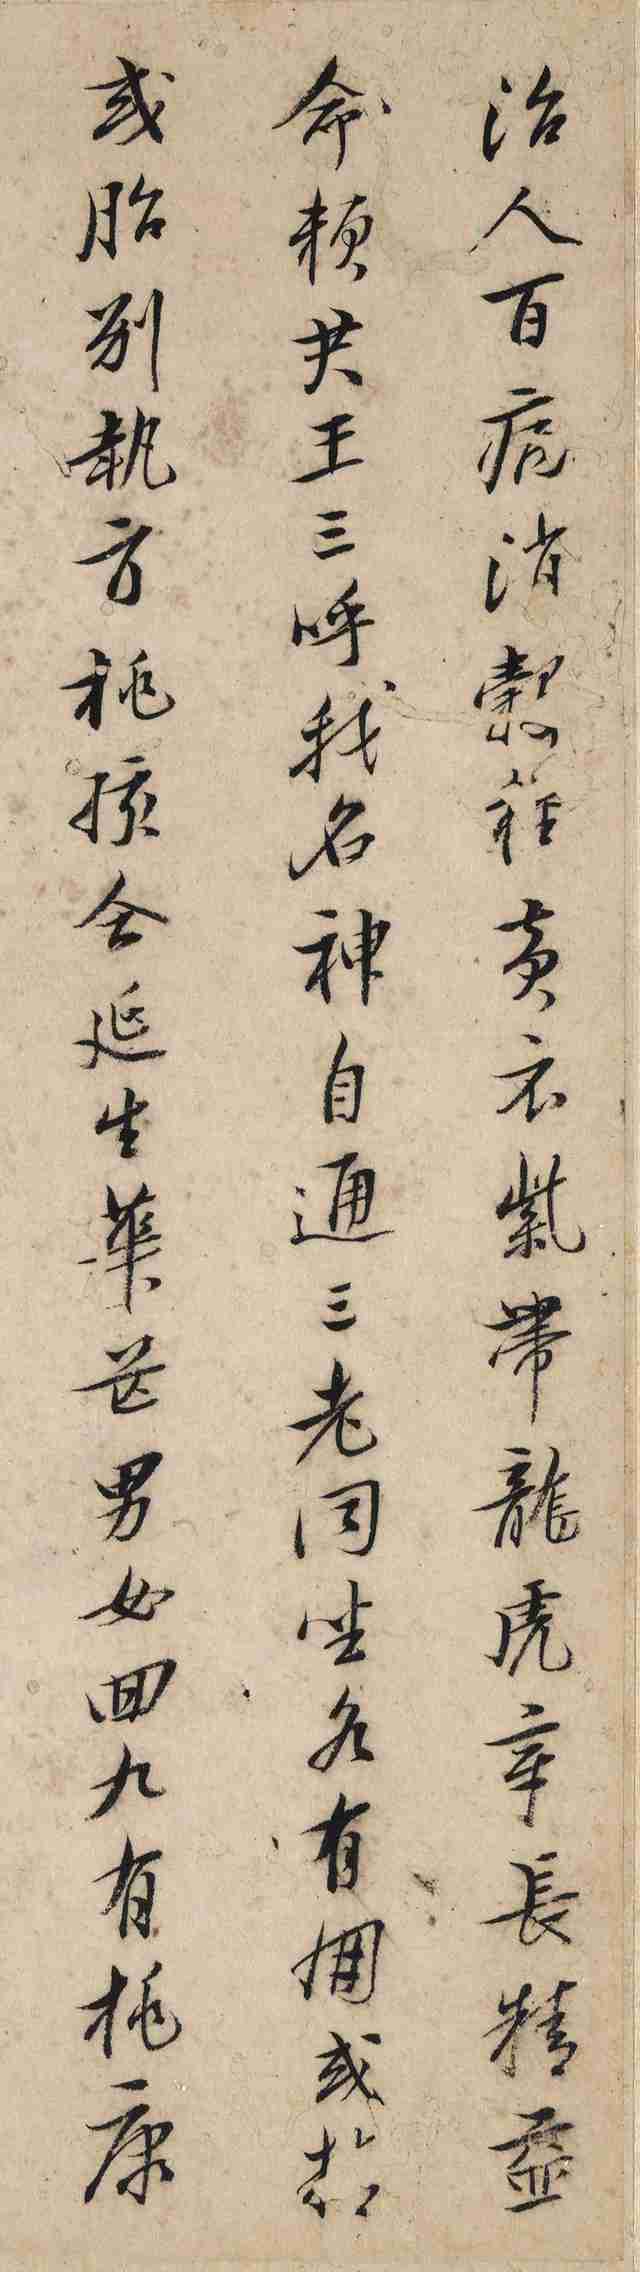 治人百病消穀粮黄衣紫帶龍虎章長精益
命頼共王三呼我名神自通三老同坐各有朋或精
或胎別執方桃孩合延生華芒男女回九有桃康